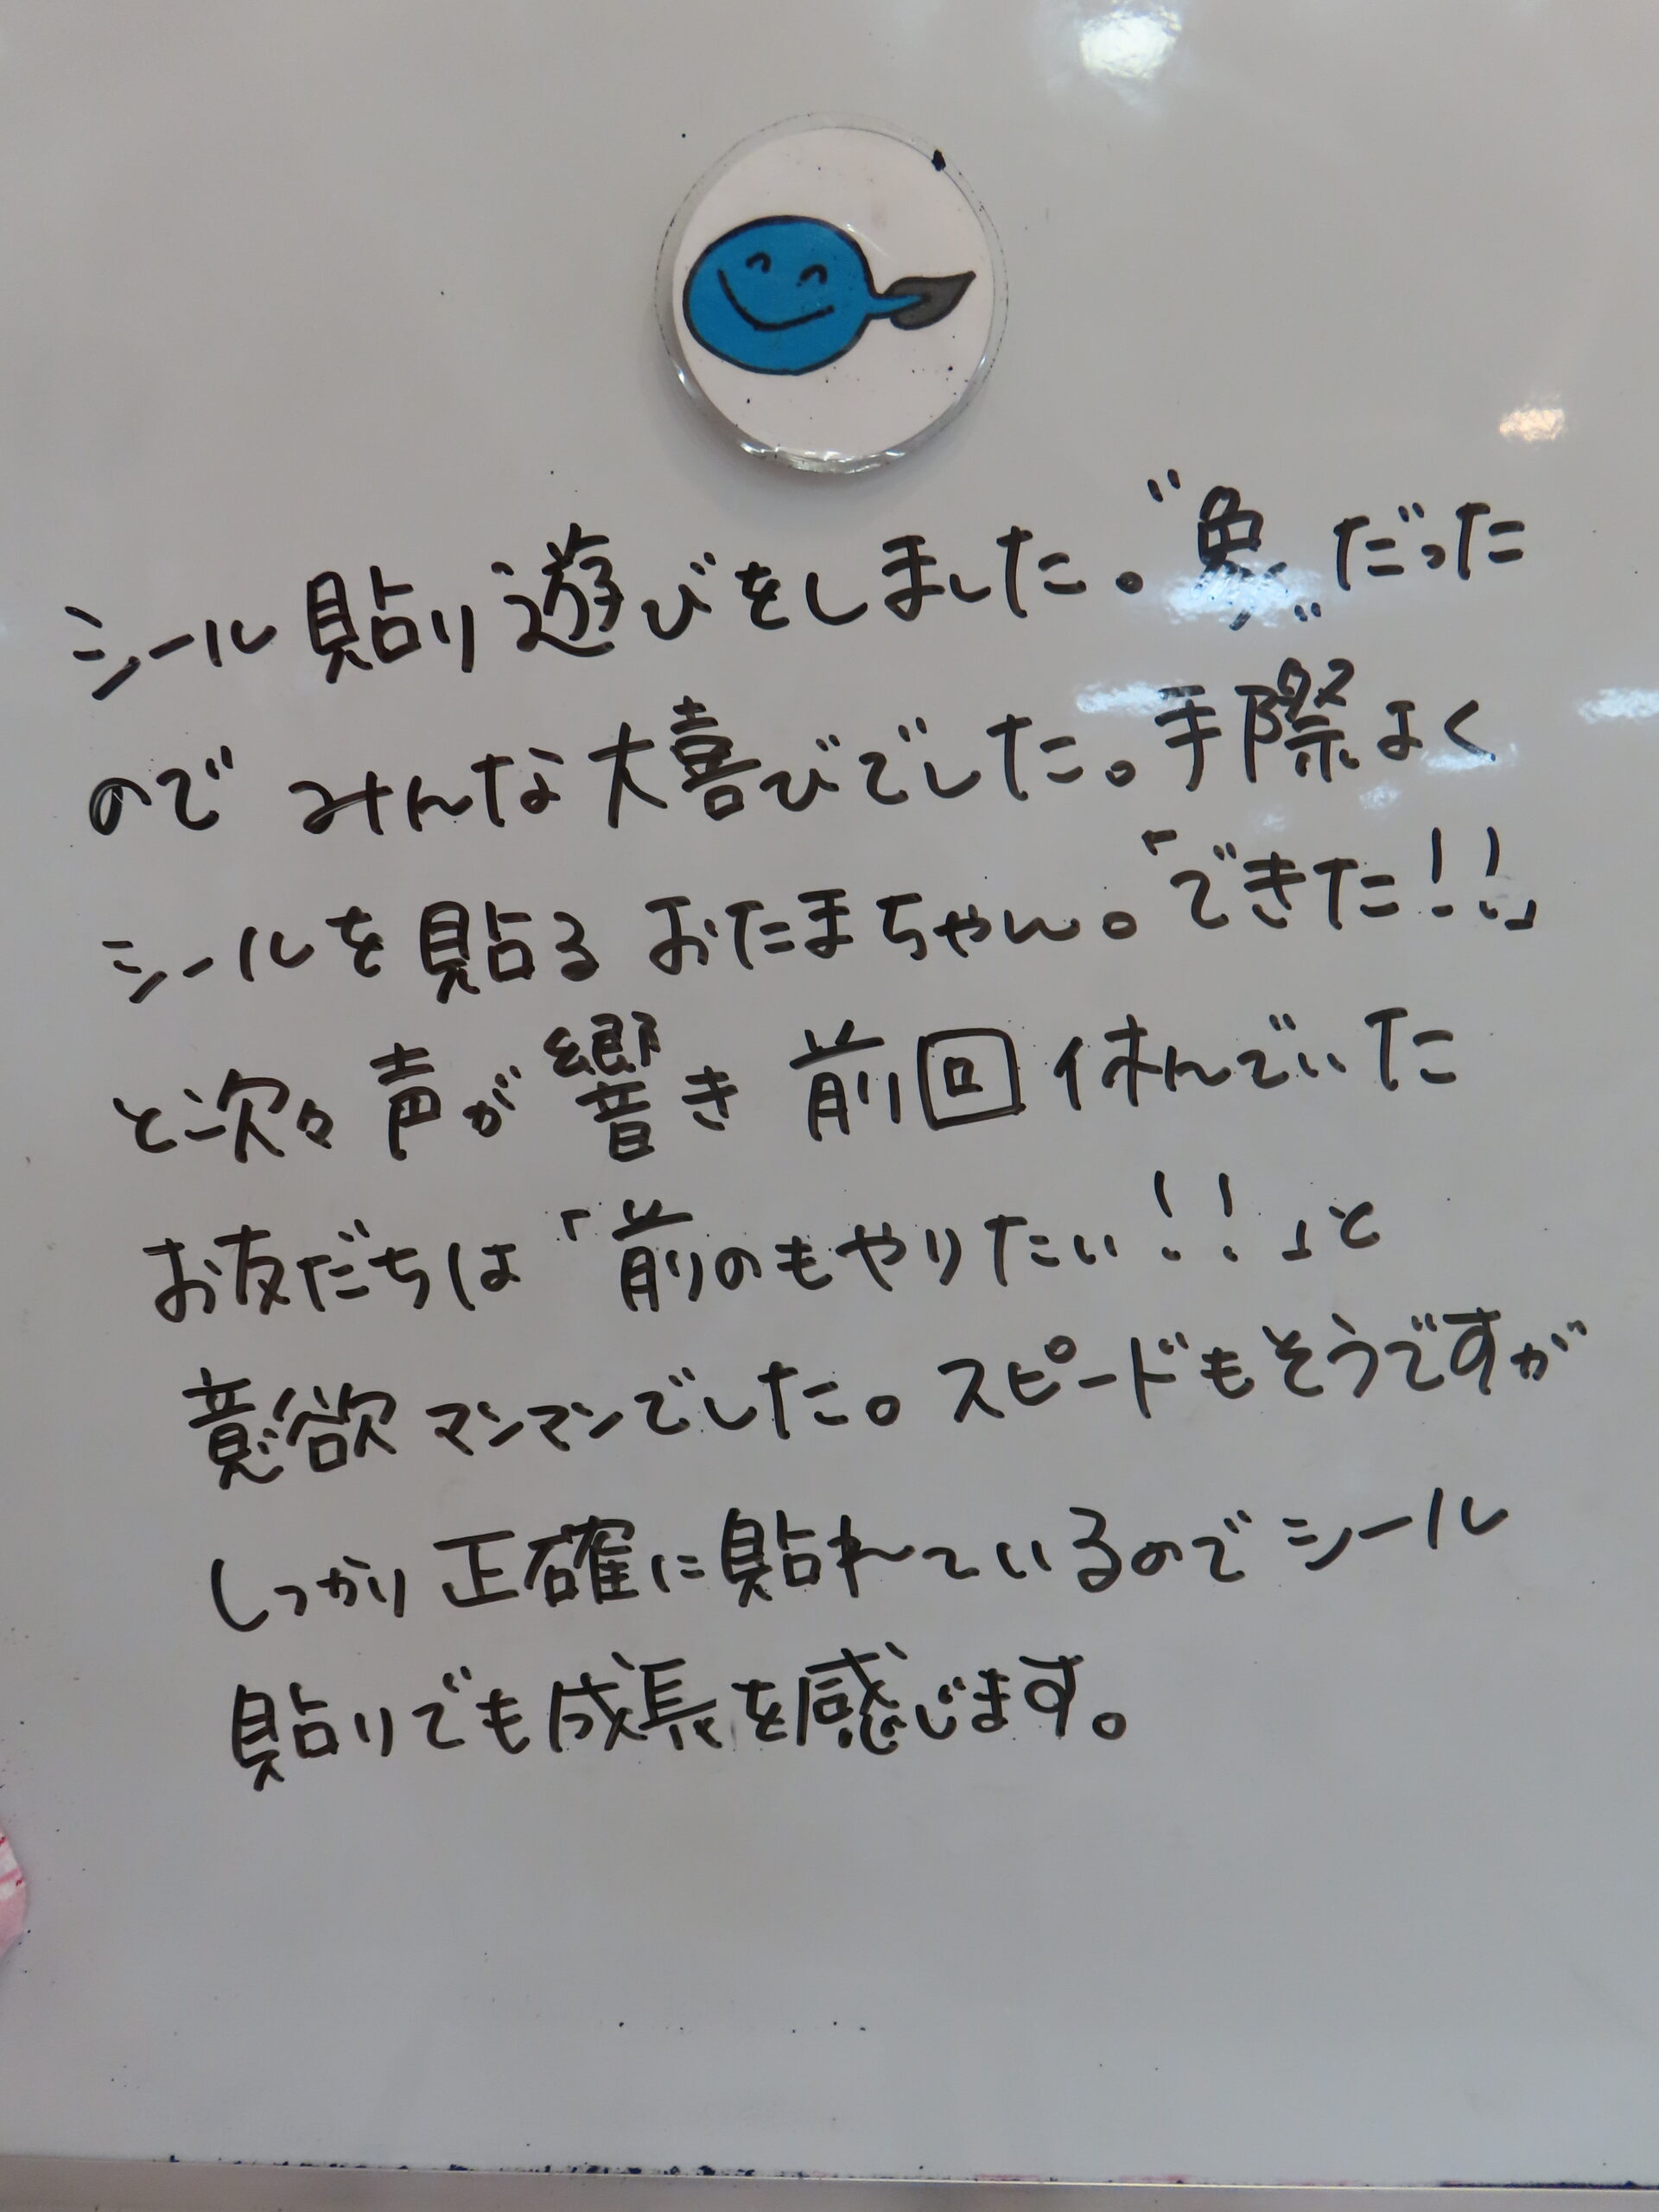 シール貼り遊びをしました。"象"だった
のでみんな大喜びでした。手際よく
シールを貼るおたまちゃん。「できた!!」
と次々声が響き前回休んでいた
お友だちは「前のもやりたい!!」と
意欲マンマンでした。スピードもそうですが
しっかり正確に貼れているのでシール
貼りでも成長を感じます。